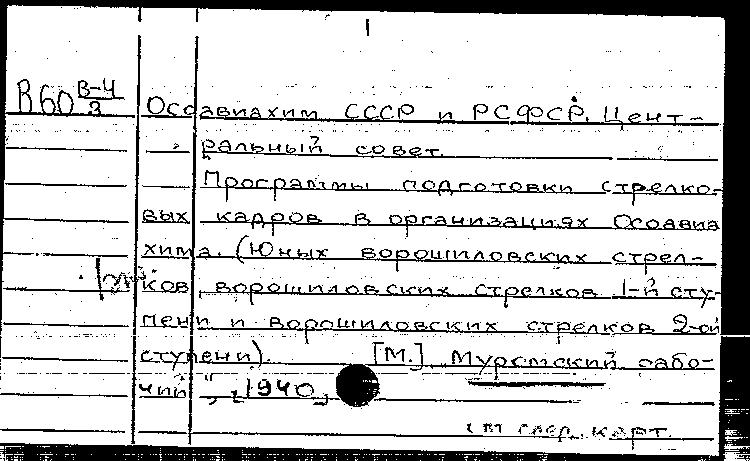 1
В60 В-4/3 Осоавиахим СССР и РСФСР. Цент-
ральный совет.
Программы подготовки стрелко-
вых кадров в организациях Осоавиа
хима. (Юных ворошиловских стрел-
ков, ворошиловских стрелков 1-й сту-
пени и ворошиловских стрелков 2-ой
ступени). [М.] Муромский рабо-
чий", 1940,
см след. карт.